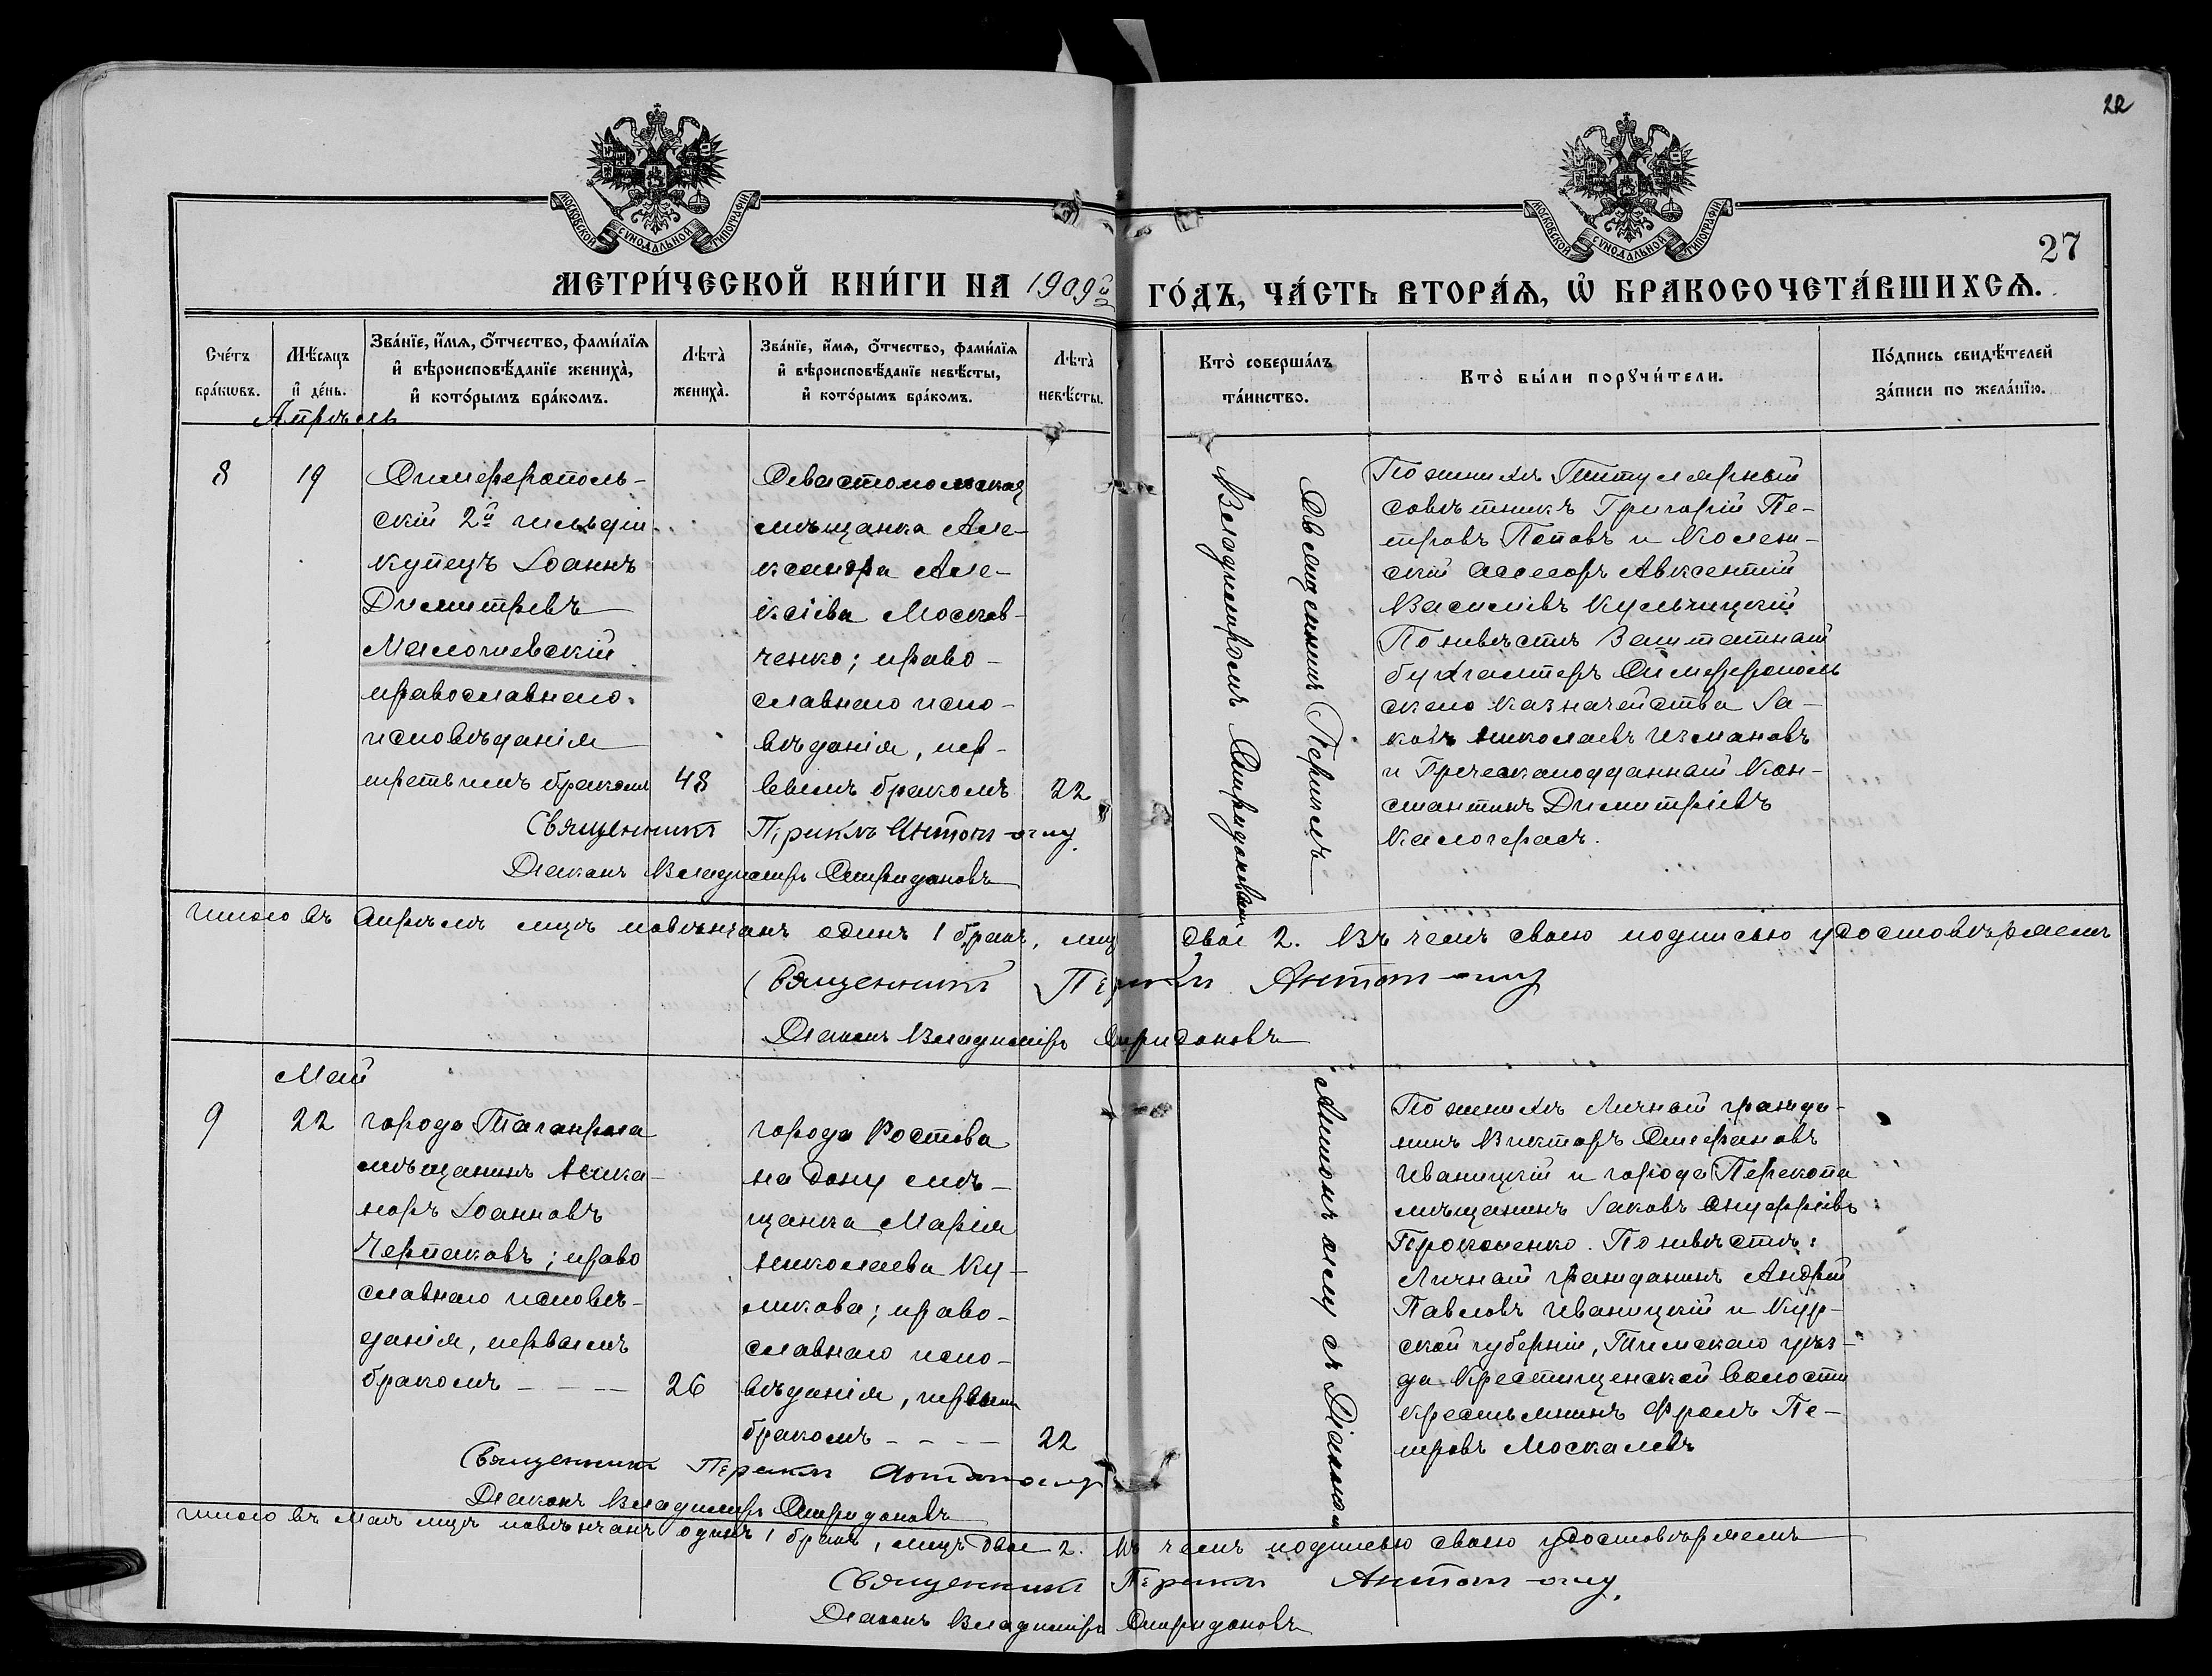 22
27
МОСКОВСКОЙ СѴНОДАЛЬНОЙ ТИПОГРАФІИ
МОСКОВСКОЙ СѴНОДАЛЬНОЙ ТИПОГРАФІИ
МЕТРИ́ЧЕСКОЙ КНИ́ГИ НА 1909й ГО́ДЪ, ЧА́СТЬ ВТОРА́Ѧ, Ѡ҆ БРАКОСОЧЕТА́ВШИХСѦ.
Сче́тъ бра́кѡвъ.
Мѣ́сѧцъ и҆ де́нь.
Зва́нїе, и҆́мѧ, ѻ҆́тчество, фами́лїѧ
и҆ вѣроисповѣ́данїе жениха̀,
и҆ кото́рымъ бра́комъ.
Лѣта̀ жениха̀.
Зва́нїе, и҆́мѧ, ѻ҆́тчество, фами́лїѧ
и҆ вѣроисповѣ́данїе невѣ́сты,
и҆ кото́рымъ бра́комъ.
Лѣта̀ невѣ́сты.
Кто̀ соверша́лъ та́инство.
Кто̀ бы́ли порꙋчи́тели.
По́дпись свидѣ́телей за́писи по жела́нїю.
Апрѣль
8
19
Симферополь-
скій 2й гильдіи
купецъ Іоаннъ
Димитріевъ
православнаго
исповѣданія
третьимъ бракомъ
48
Севастопольская
мѣщанка Але-
ксандра Але-
ксіева Москов-
ченко; право-
славнаго испо-
вѣданія, пер-
вымъ бракомъ
22
Священникъ Периклъ Антонъ-оглу.
Діаконъ Владиміръ Спиридоновъ
Священникъ Периклъ
Владиміромъ Спиридоновымъ
По женихѣ Титулярный
совѣтникъ Григорій Пе-
тровъ Поповъ и Коллеж-
скій асесоръ Авксентій
Василіевъ Кульчицкій
По невѣстѣ Заштатный
бухгалтеръ Симферополь
скаго казначейства Іа-
ковъ Николаевъ Измановъ
и Греческоподданный Кон-
стантинъ Димитріевъ
Калогерасъ.
Итого въ апрѣлѣ мцѣ повѣнчанъ одинъ 1 бракъ, лицъ двое 2. Въ чемъ своею подписью удостовѣряемъ
Священникъ Периклъ Антонъ-оглу
Діаконъ Владиміръ Спиридоновъ
Май
9
22
города Таганрога
мѣщанинъ Ника-
норъ Іоанновъ
Черпаковъ; право
славнаго исповѣ-
данія, первымъ
бракомъ
26
города Ростова
на Дону мѣ-
щанка Марія
Николаева Ку-
ликова; право-
славнаго испо-
вѣданія, первымъ
бракомъ
22
Священникъ Периклъ Антонъ-оглу
Діаконъ Владиміръ Спиридоновъ
Антонъ оглу съ Діакономъ
По женихѣ Личный гражда-
нинъ Викторъ Стефановъ
Иваницкій и города Перекопа
мѣщанинъ Іаковъ Онуфріевъ
Прокопенко. По невѣстѣ:
Личный гражданинъ Андрей
Павловъ Иваницкій и Кур-
ской губерніи, Тимскаго уѣз-
да Крестищенской волости
крестьянинъ Фролъ Пе-
тровъ Москалевъ
Итого въ маѣ мцѣ повѣнчанъ одинъ 1 бракъ, лицъ двое 2. Въ чемъ подписью своею удостовѣряемъ
Священникъ Периклъ Антонъ-оглу.
Діаконъ Владиміръ Спиридоновъ